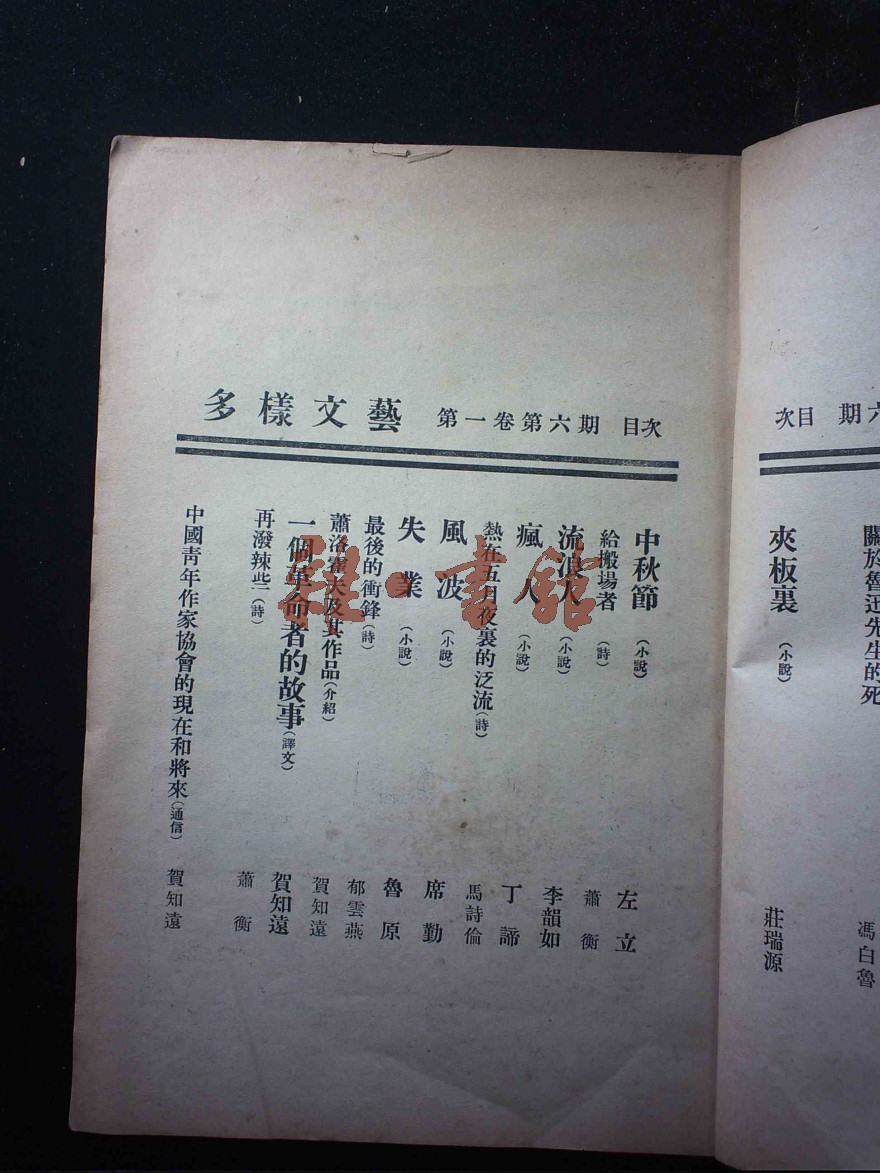 關於魯迅先生的死 馮白魯
夾板裏（小說） 莊瑞源
次目 期六
多樣文藝 第一卷第六期 目次
中秋節（小說） 左立
給搬場者（詩） 蕭衡
流浪人（小說） 李韻如
瘋人（小說） 丁諦
熱在五月夜裏的泛流（詩） 馬詩倫
風波（小說） 席勤
失業（小說） 魯原
最後的衝鋒（詩） 郁雲燕
蕭洛霍夫及其作品（介紹） 賀知遠
一個革命者的故事（譯文） 賀知遠
再潑辣些（詩） 蕭衡
中國青年作家協會的現在和將來（通信） 賀知遠